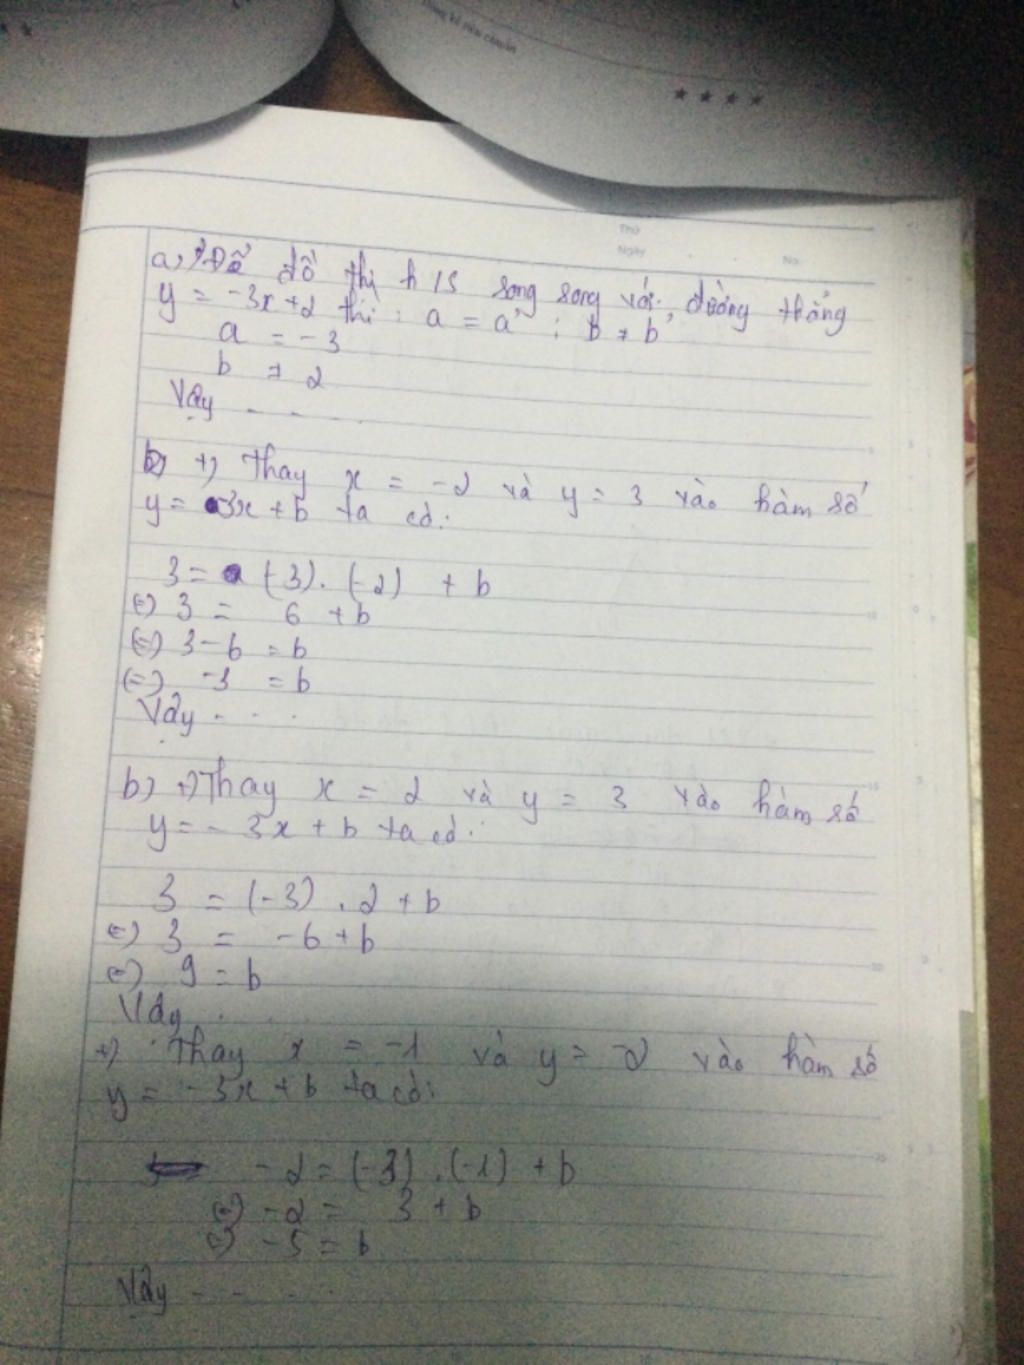 Cùng kẻ nên chuẩn
★ ★ ★ ★
Thứ
Ngày
No.
a, Để đồ thị h/s song song với đường thẳng
y = -3x+2 thì : a = a' ; b ≠ b'
a = -3
b ≠ 2
Vậy - - -
b, +, Thay x = -2 và y = 3 vào hàm số
y = 3x + b ta có:
3 = (-3). (-2) + b
(=) 3 = 6 + b
(=) 3 - 6 = b
(=) -3 = b
Vậy - - .
b) +, Thay x = 2 và y = 3 vào hàm số
y = - 3x + b ta có:
3 = (-3) . 2 + b
(=) 3 = -6 + b
(=) 9 = b
Vậy . .
+, Thay x = -1 và y = -2 vào hàm số
y = -3x + b ta có:
-2 = (-3) . (-1) + b
(=) -2 = 3 + b
(=) -5 = b
Vậy - - . .